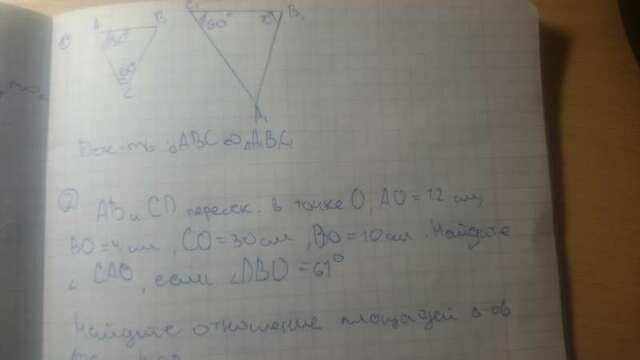 ①
A B
C
C₁ B₁
60°
A₁
Док-ть: △ABC ∾ △A₁B₁C₁
② AB и CD пересек. в точке O, AO = 12 см,
BO = 4 см, CO = 30 см, DO = 10 см. Найдите
∠ CAO, если ∠DBO = 61°
Найдите отношение площадей